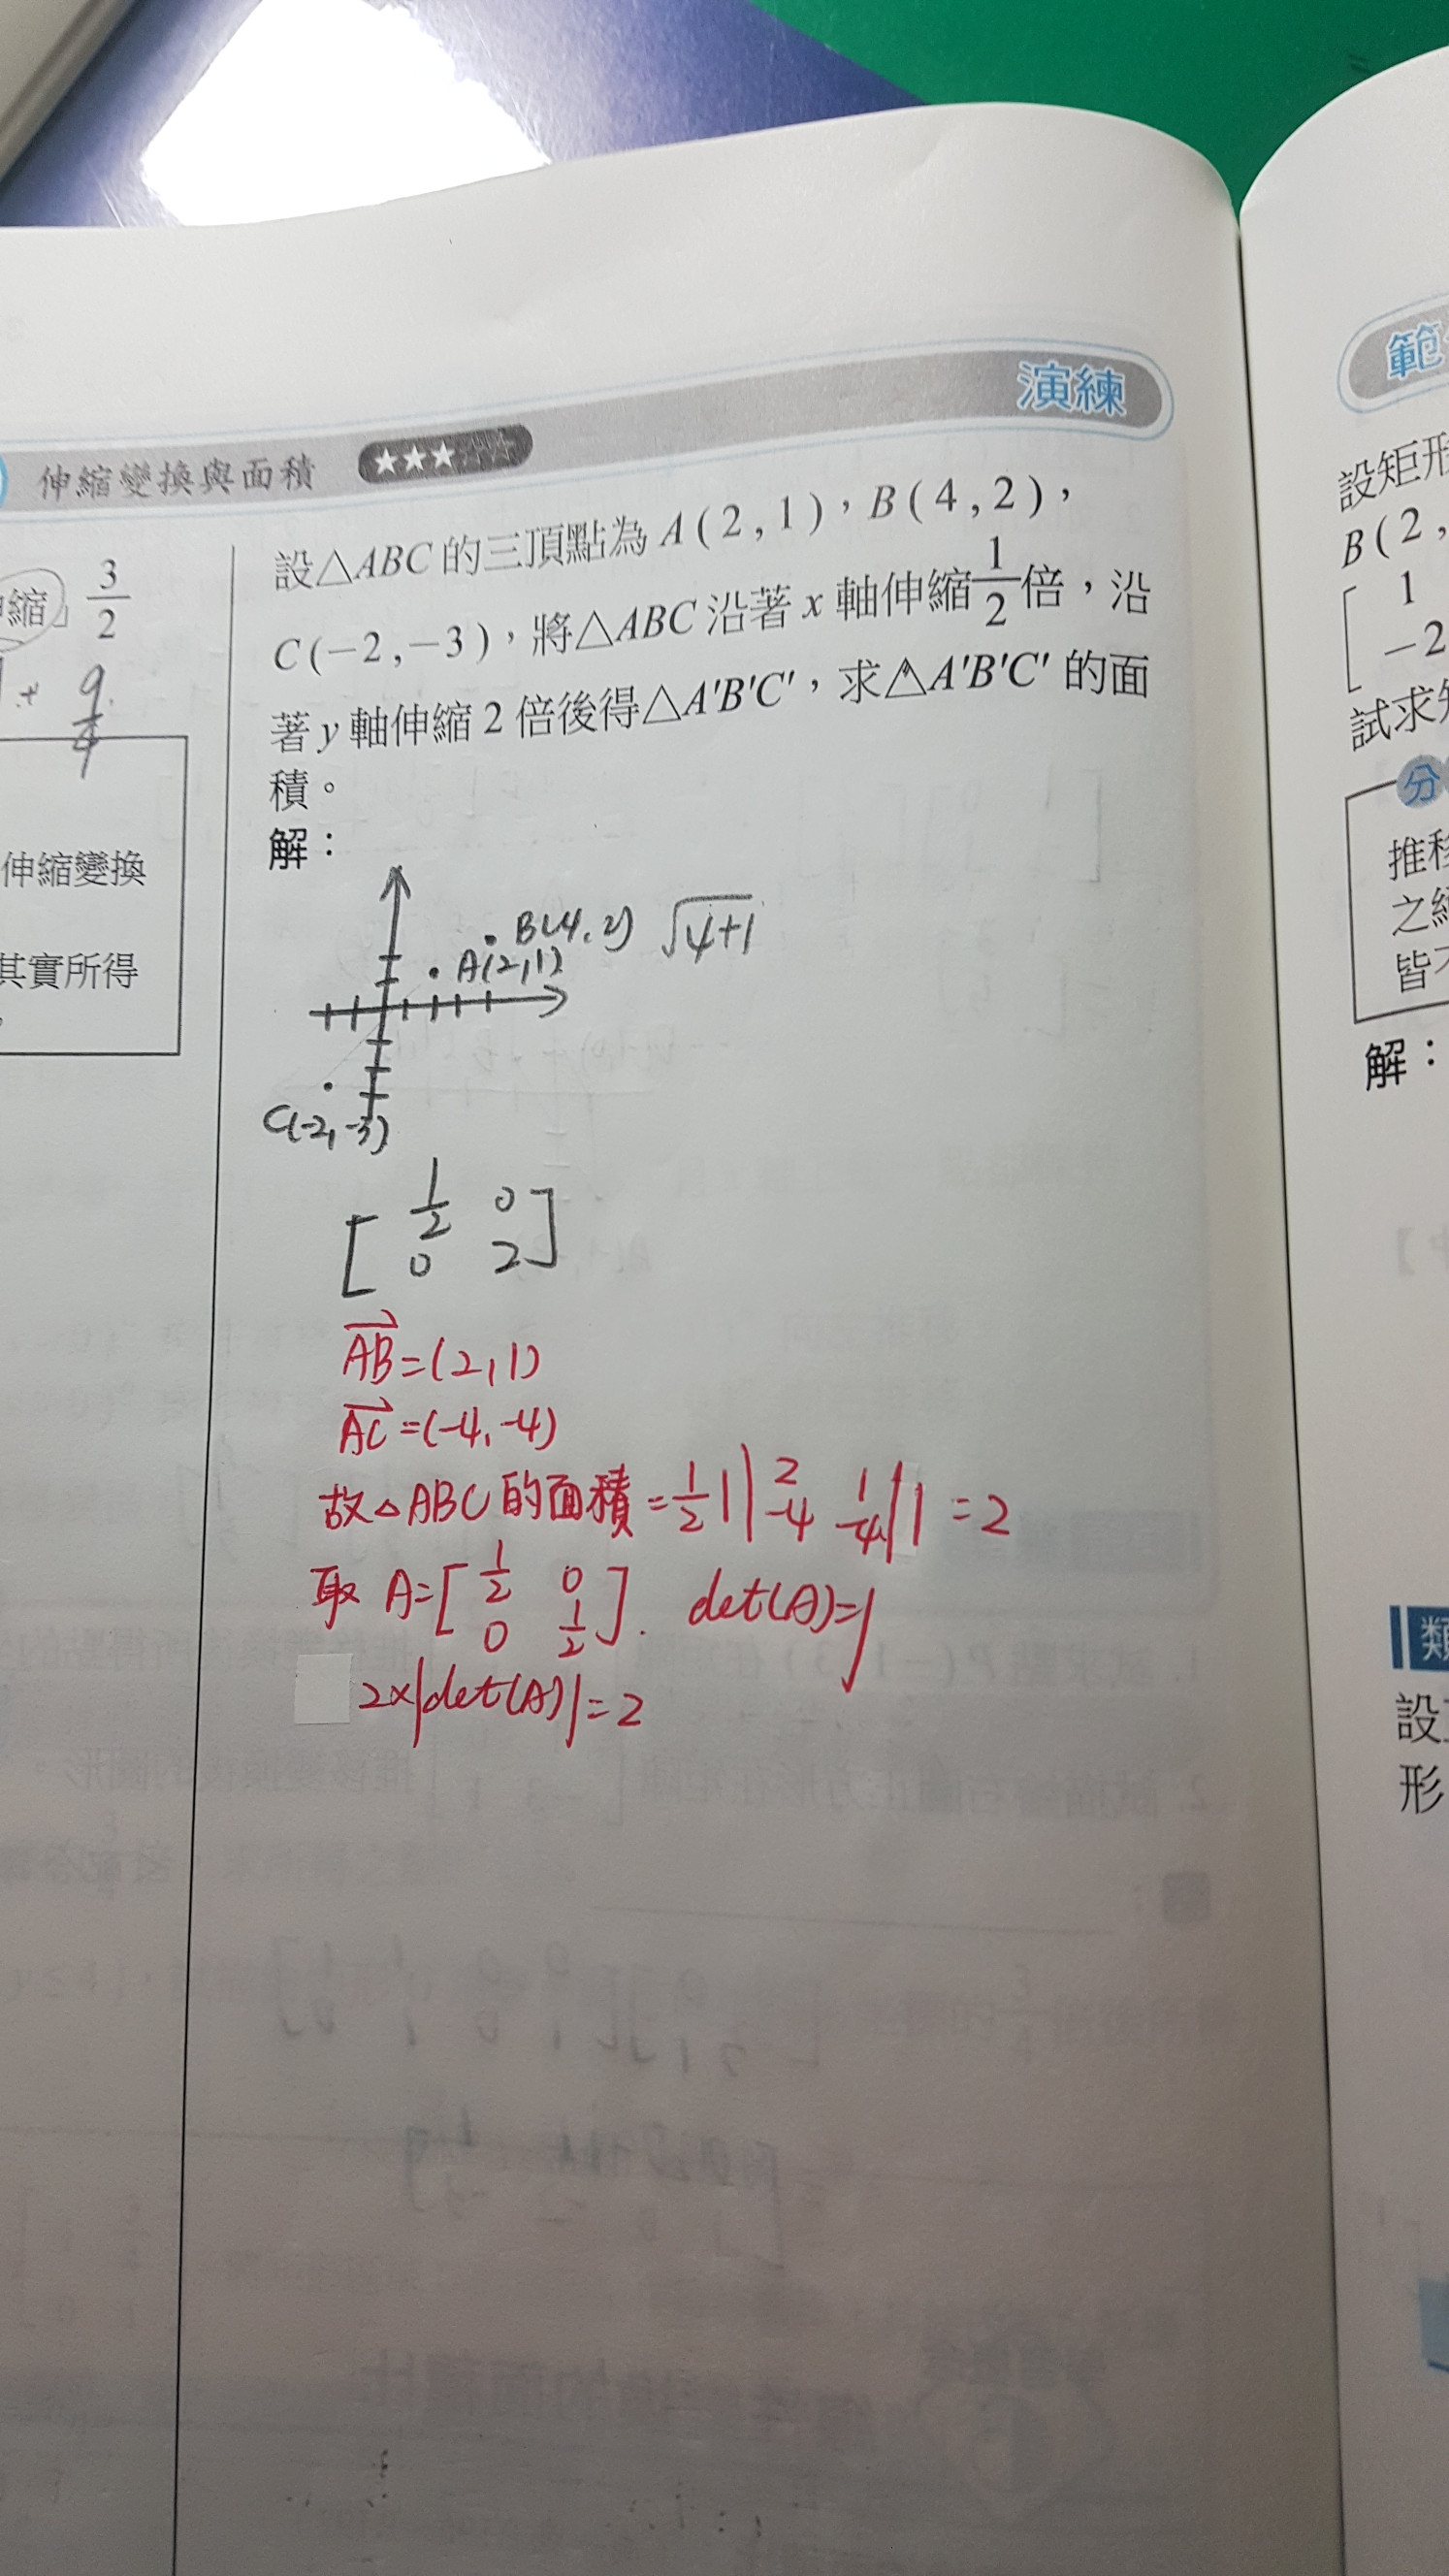 演練
伸縮變換與面積 ★★★☆☆
設△ABC的三頂點為A(2,1),B(4,2),
C(-2,-3),將△ABC沿著x軸伸縮1/2倍,沿
著y軸伸縮2倍後得△A'B'C',求△A'B'C'的面
積。
解:
B(4,2) √4+1
A(2,1)
C(-2,-3)
[1/2 0
0 2]
AB=(2,1)
AC=(-4,-4)
故△ABC的面積=1/2||2 1
-4 -4||=2
取 A=[1/2 0
0 1/2]. det(A)=1
2×|det(A)|=2
縮」3/2
+ 9/4
伸縮變換
其實所得
。
範
設矩形
B(2,
[1
-2
試求
分
推移
之
皆不
解:
類
設
形